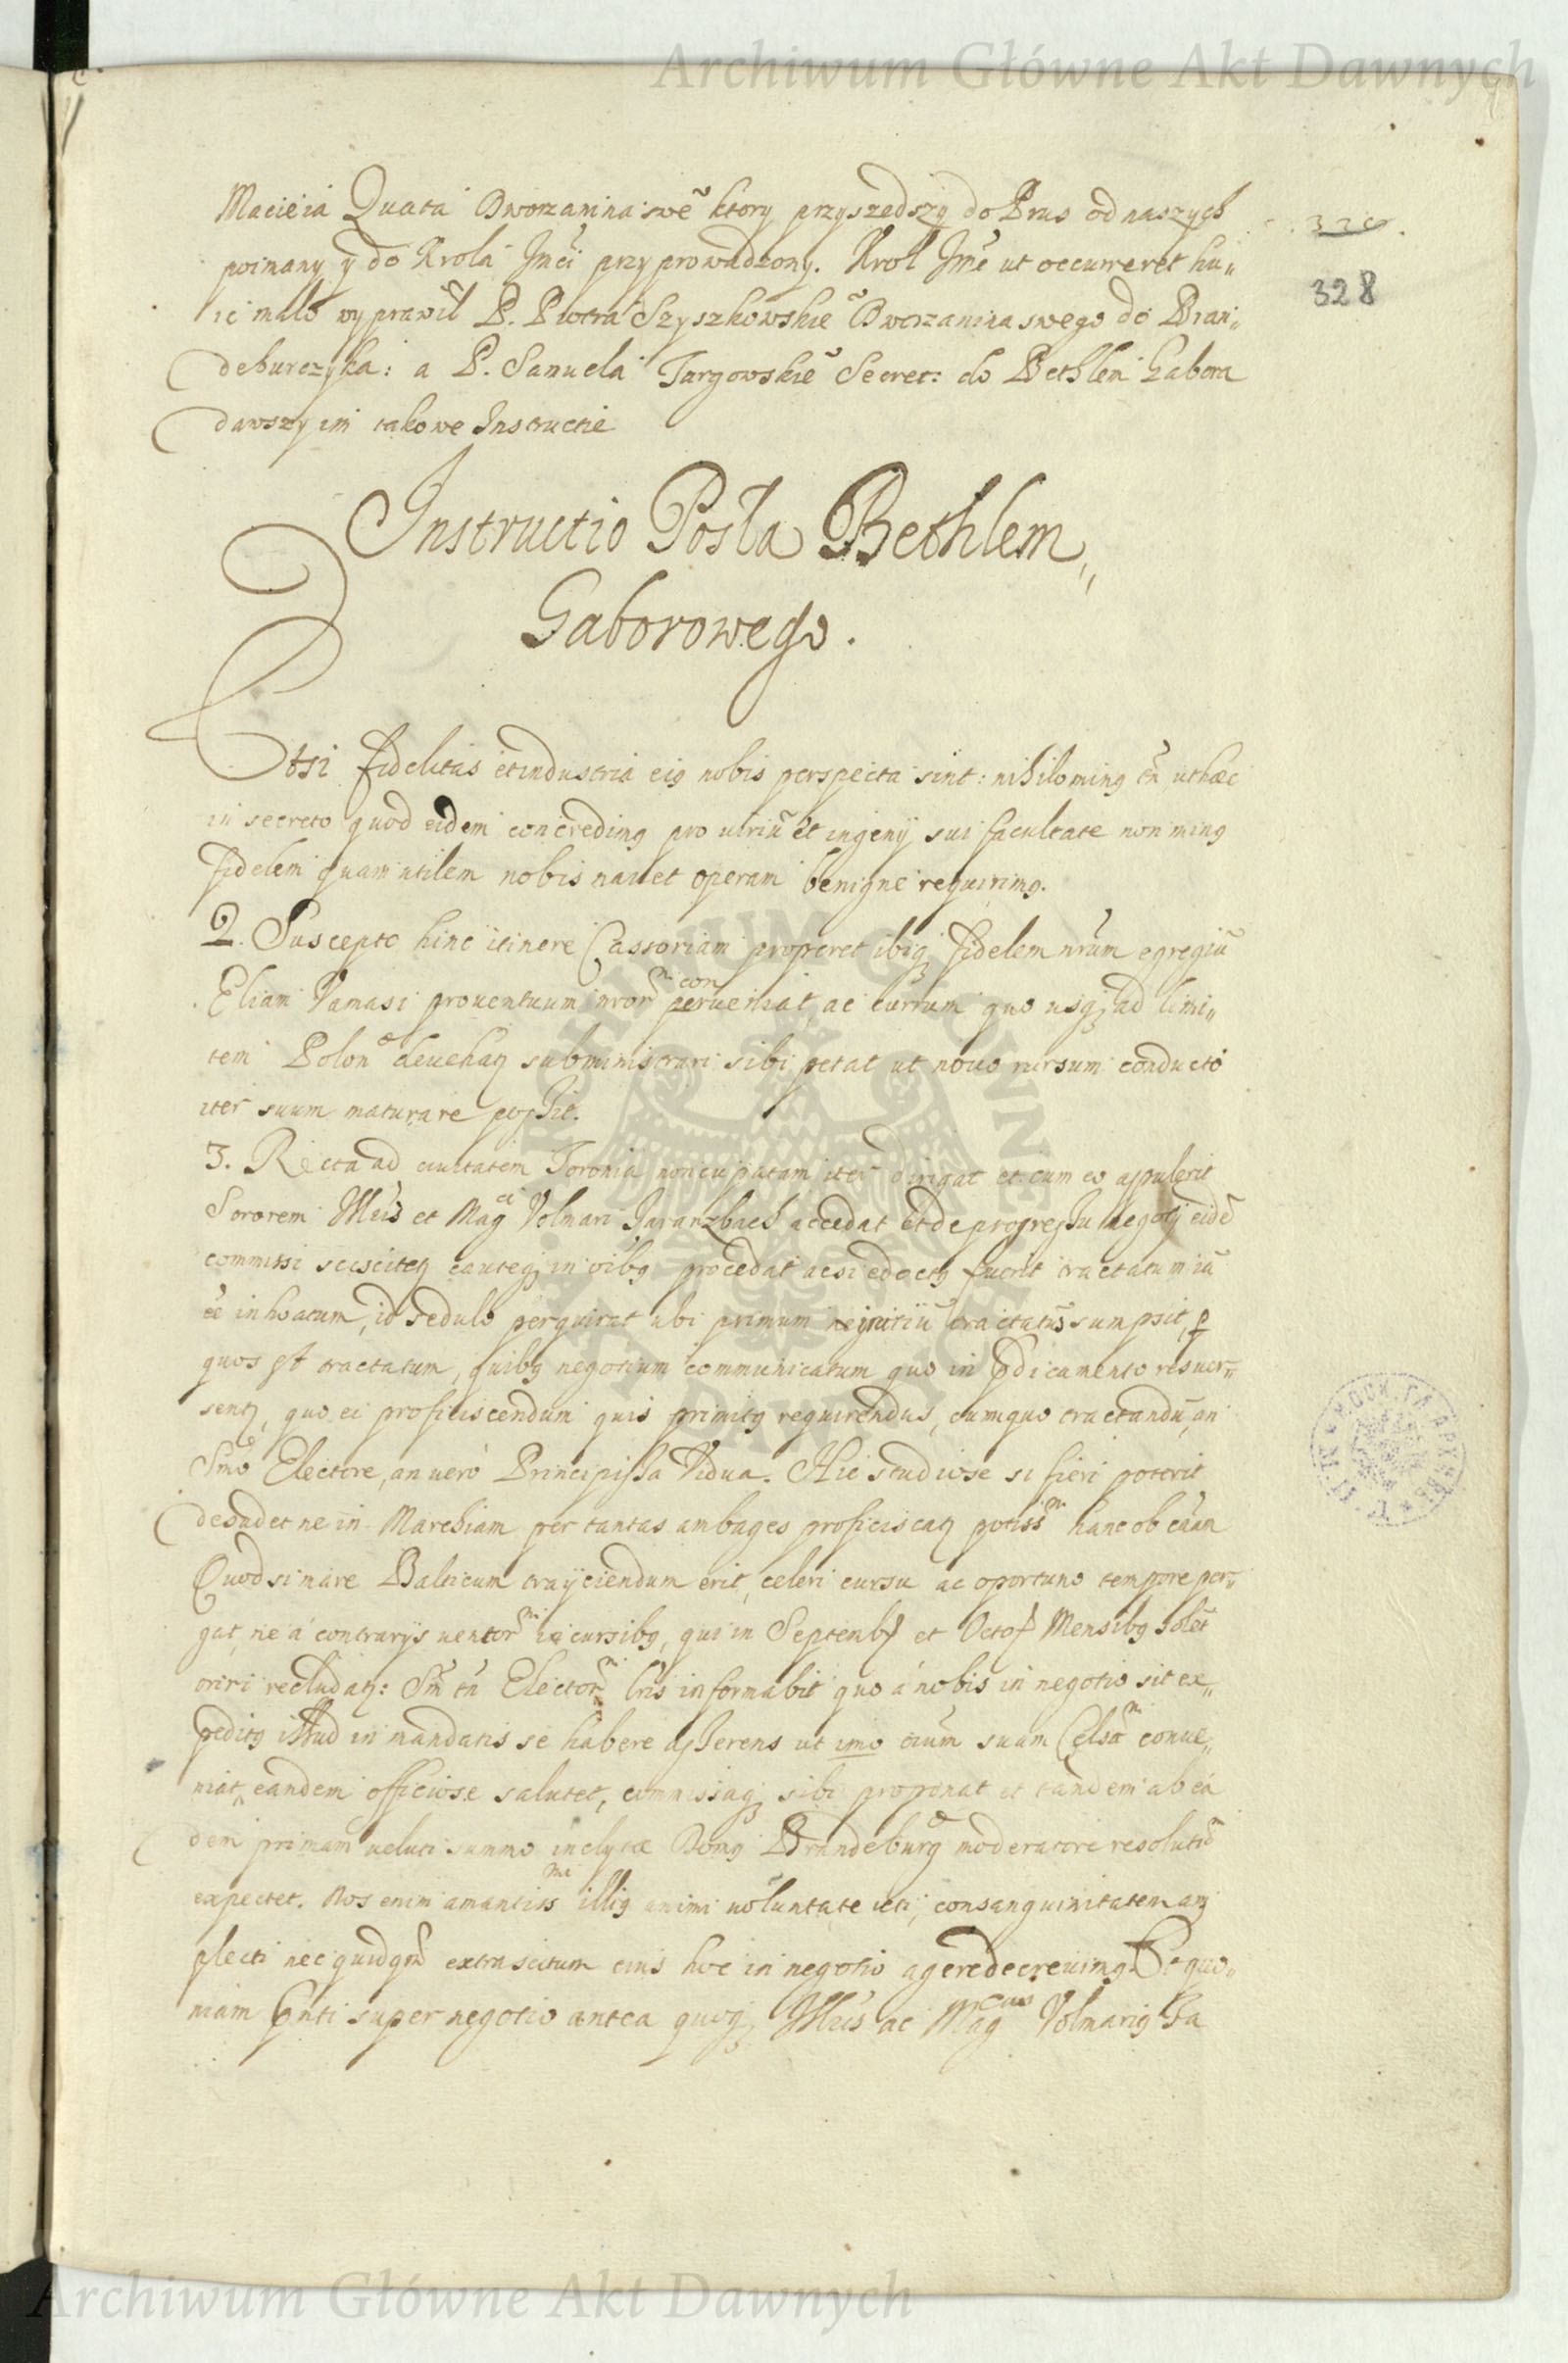 Archiwum Główne Akt Dawnych
Macieia Quata Dworzanina swẽ ktory przyszedszy do Prus od naszych
poimany y do Krola Jmći przyprowadzony. Krol Jmć ut occurreret hu„
328
ic malo wyprawił P. Piotra Szyszkowskiẽ Dworzanina swego do Bran„
deburczyka: a P. Samuela Targowskiẽ Secret: do Bethlem Gabora
dawszy im takowe Instructie
Instructio Posła Bethlem„
Gaborowego.
Etsi fidelitas et industria eiꝰ nobis perspecta sint: nihilominꝰ tñ ut hæc
in secreto quod eidem concredimꝰ pro uiriũ et ingenij sui facultate non minꝰ
fidelem quam utilem nobis nauet operam benigne requirimꝰ.
2. Suscepto hinc itinere Cassoviam properet ibiqꝫ fidelem nrũm egregiũ
Eliam Vamasi prouentuum nror͂ con
perueniat, ac currum quo usqꝫ ad limi„
tem Polonᵉ deuehatꝫ subministrari sibi petat ut nouo rursum conducto
iter suum maturare possit.
3. Recta ad ciuitatem Toronia noncupatam iter dirigat et cum eo appulerit
Sororem Illris et Magᶜⁱ Volmari Faranzbach accedat et de progressu negotij eidẽ
commissi sciscitetꝫ cauteqꝫ in oĩbꝰ procedat ac si edoctꝰ fuerit tractatum iã
eẽ inhoatum, id sedulo perquirat ubi primum initiũ tractatus sumpsit, ꝑ
quos sit tractatum, quibꝰ negotium communicatum quo in p̃dicamento res uer„
sentꝫ, quo ei proficiscendum quis primitꝰ requirendus, cumquo tractandũ, an
Smᵒ Electore, an uerò Principissa Vidua. Hic studiose si fieri poterit
desudet ne in Marchiam per tantas ambages proficiscatꝫ potissᵐ hanc ob cãan
Quod si mare Balticum traijciendum erit, celeri cursu ac oportuno tempore per„
gat, ne à contrarijs uentor͂ incursibꝰ, qui in Septemb et Octob Mensibꝰ solẽt
oriri recludatꝫ: Sm̃ tñ Elector͂ lr̃is informabit quo à nobis in negotio sit ex„
peditꝰ illud in mandatis se habere asserens ut imo cum suam Celsᵐ conue„
niat, eandem officiose salutet, commissaqꝫ sibi proponat et tandem ab eá
dem primam ueluti summo inclytæ Domꝰ Brandeburgᵉ moderatore resolutiõ
expectet. Nos enim amantissᵐᵃ illiꝰ animi uoluntate icti, consanguinitatem am
plecti nec quidqm̃ extra scitum eius hoc in negotio agere decreuimꝰ. Et quo„
niam p̃nti super negotio antea quoqꝫ Illris ac Magᶜᵘˢ Volmariꝰ Fa
Archiwum Główne Akt Dawnych